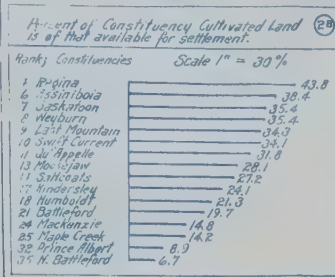 Percent of Constituency Cultivated Land
is of that available for settlement.
28
Rank; Constituencies Scale 1" = 30%
1 Regina 43.8
6 Assiniboia 38.4
7 Saskatoon 35.4
8 Weyburn 35.4
9 Last Mountain 34.3
10 Swift Current 34.1
11 Qu'Appelle 31.8
13 Moosejaw 28.1
Saltcoats 27.2
17 Kindersley 24.1
18 Humboldt 21.3
21 Battleford 19.7
24 Mackenzie 14.8
25 Maple Creek 14.2
32 Prince Albert 8.9
35 N. Battleford 6.7